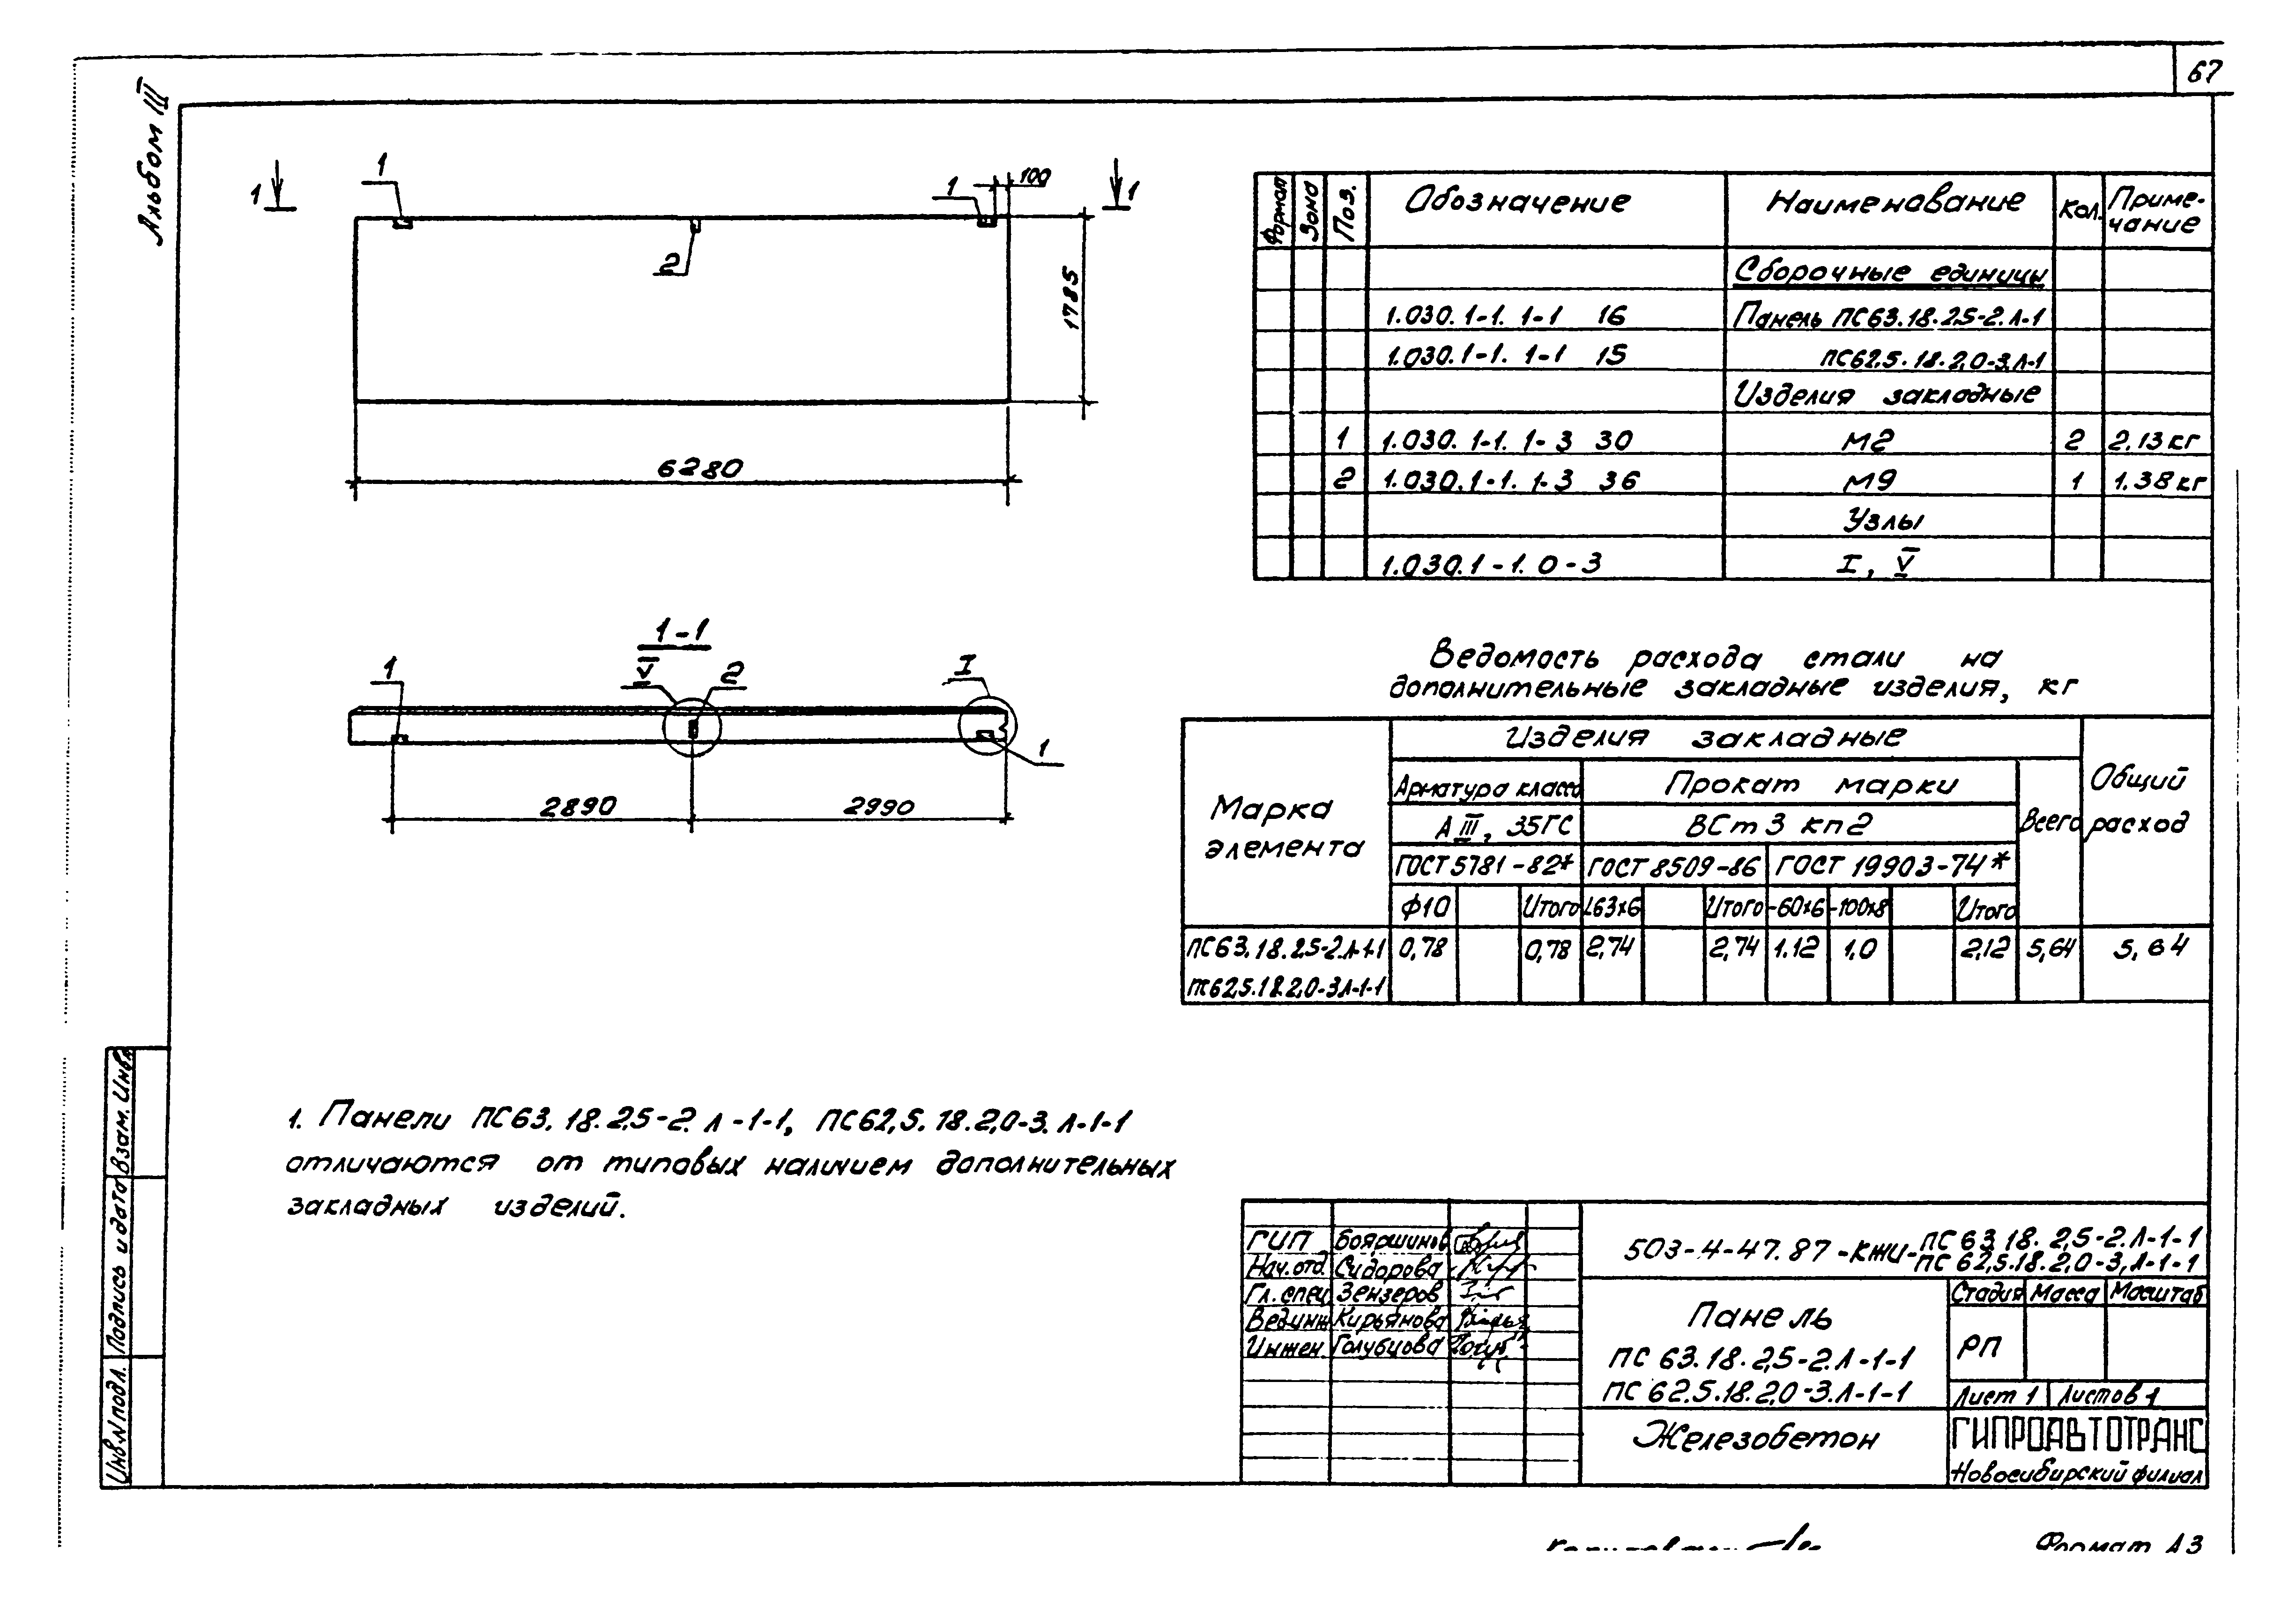 67
Альбом III
1 1 1 100 1
2
1785
6280
1-1
1 V 2 I
1
2890 2990
Формат Зона Поз. Обозначение Наименование Кол. Приме-
чание
Сборочные единицы
1.030.1-1. 1-1 16 Панель ПС63.18.2,5-2.Л-1
1.030.1-1. 1-1 15 ПС62,5.18.2,0-3.Л-1
Изделия закладные
1 1.030.1-1. 1-3 30 М2 2 2.13кг
2 1.030.1-1. 1-3 36 М9 1 1.38кг
Узлы
1.030.1-1. 0-3 I, V
Ведомость расхода стали на
дополнительные закладные изделия, кг
Марка
элемента
Изделия закладные
Общий
расход
Арматура класса Прокат марки Всего
А III, 35ГС ВСт3 кп2
ГОСТ 5781-82* ГОСТ 8509-86 ГОСТ 19903-74*
Ф10 Итого L63x6 Итого -60x6 -100x8 Итого
ПС63.18.2,5-2.Л-1-1 0,78 0,78 2,74 2,74 1.12 1,0 2,12 5,64 5,64
ПС62,5.18.2,0-3.Л-1-1
1. Панели ПС63.18.2,5-2.Л-1-1, ПС62,5.18.2,0-3.Л-1-1
отличаются от типовых наличием дополнительных
закладных изделий.
Взам. Инв.
Подпись и дата
Инв.N подл.
ГИП Бояршинов
Нач.отд. Сидорова
Гл. спец. Зензеров
Вед.инж Кирьянова
Инжен. Голубцова
503-4-47.87-КЖИ-ПС63.18.2,5-2.Л-1-1
ПС62,5.18.2,0-3.Л-1-1
Панель
ПС 63.18.2,5-2.Л-1-1
ПС 62.5.18.2,0-3.Л-1-1
Стадия Масса Масштаб
РП
Лист 1 Листов 1
Железобетон
ГИПРОАВТОТРАНС
Новосибирский филиал
Формат А3